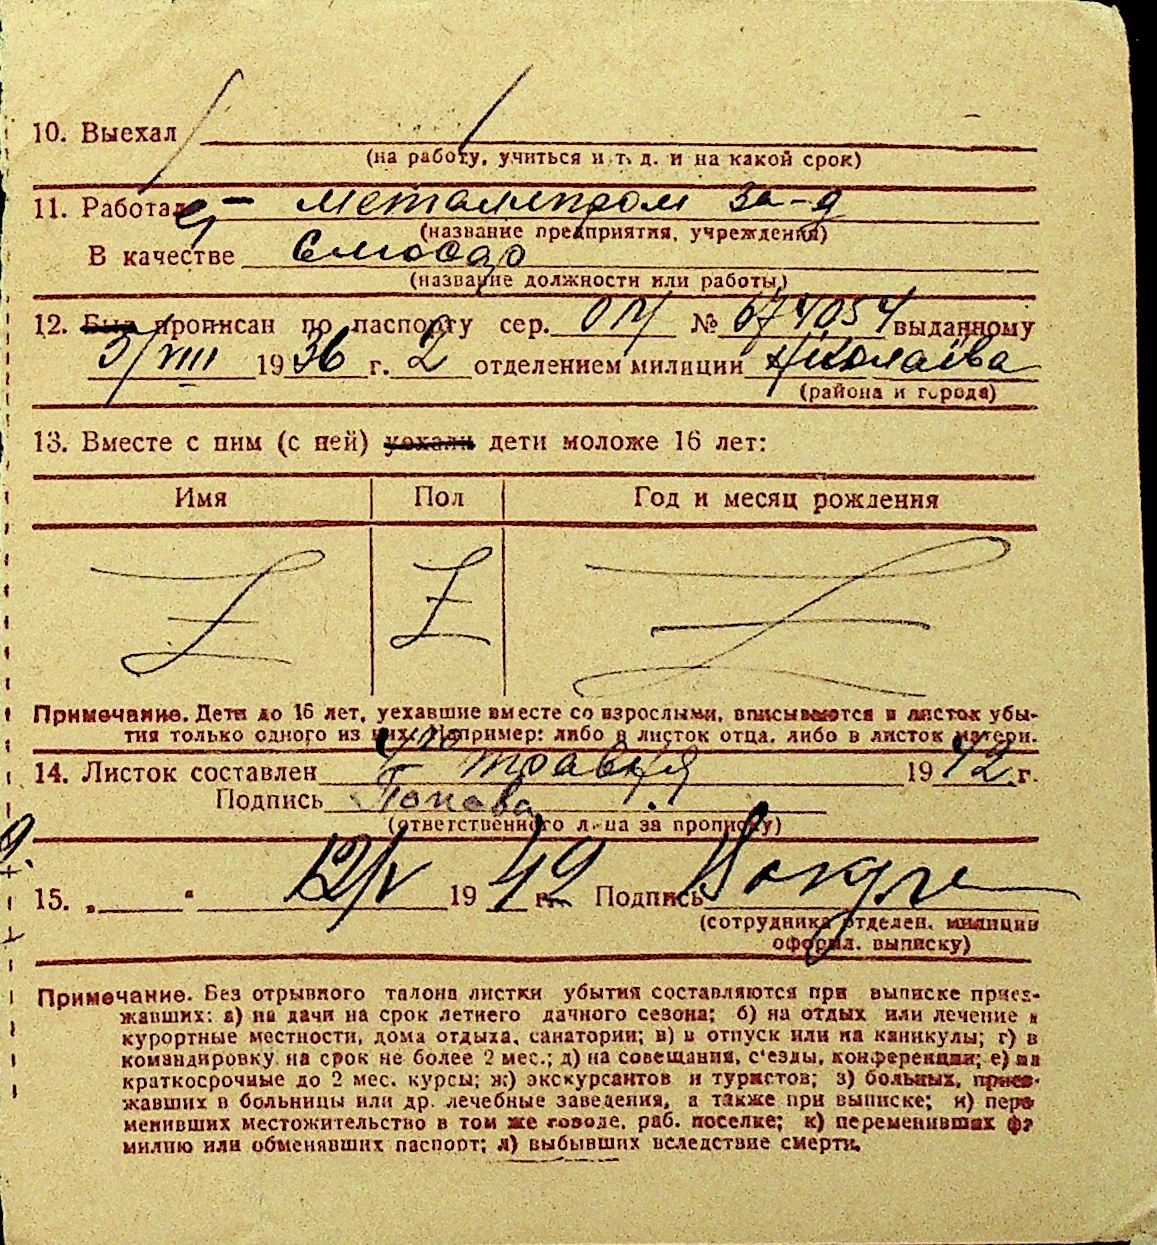 10. Выехал
(на работу, учиться и т. д. и на какой срок)
11. Работает - металпром за-д
(название предприятия, учреждения)
В качестве слюсар
(название должности или работы)
12. Был прописан по паспорту сер. № 674054 выданному
3/VIII 1936 г. 2 отделением милиции Ніколаєва
(района и города)
13. Вместе с ним (с ней) уехали дети моложе 16 лет:
Имя Пол Год и месяц рождения
Примечание. Дети до 16 лет, уехавшие вместе со взрослыми, вписываются в листок убы-
тия только одного из них. Например: либо в листок отца, либо в листок матери.
14. Листок составлен травня 1942 г.
Подпись Попова
(ответственного лица за прописку)
15. „ “ 12/V 1942 г. Подпись
(сотрудника отделен. милиции
оформл. выписку)
Примечание. Без отрывного талона листки убытия составляются при выписке приез-
жавших: а) на дачи на срок летнего дачного сезона; б) на отдых или лечение в
курортные местности, дома отдыха, санатории; в) в отпуск или на каникулы; г) в
командировку на срок не более 2 мес.; д) на совещания, с'езды, конференции; е) на
краткосрочные до 2 мес. курсы; ж) экскурсантов и туристов; з) больных, приез-
жавших в больницы или др. лечебные заведения, а также при выписке; и) пере
менивших местожительство в том же городе, раб. поселке; к) переменивших фа
милию или обменявших паспорт; л) выбывших вследствие смерти.